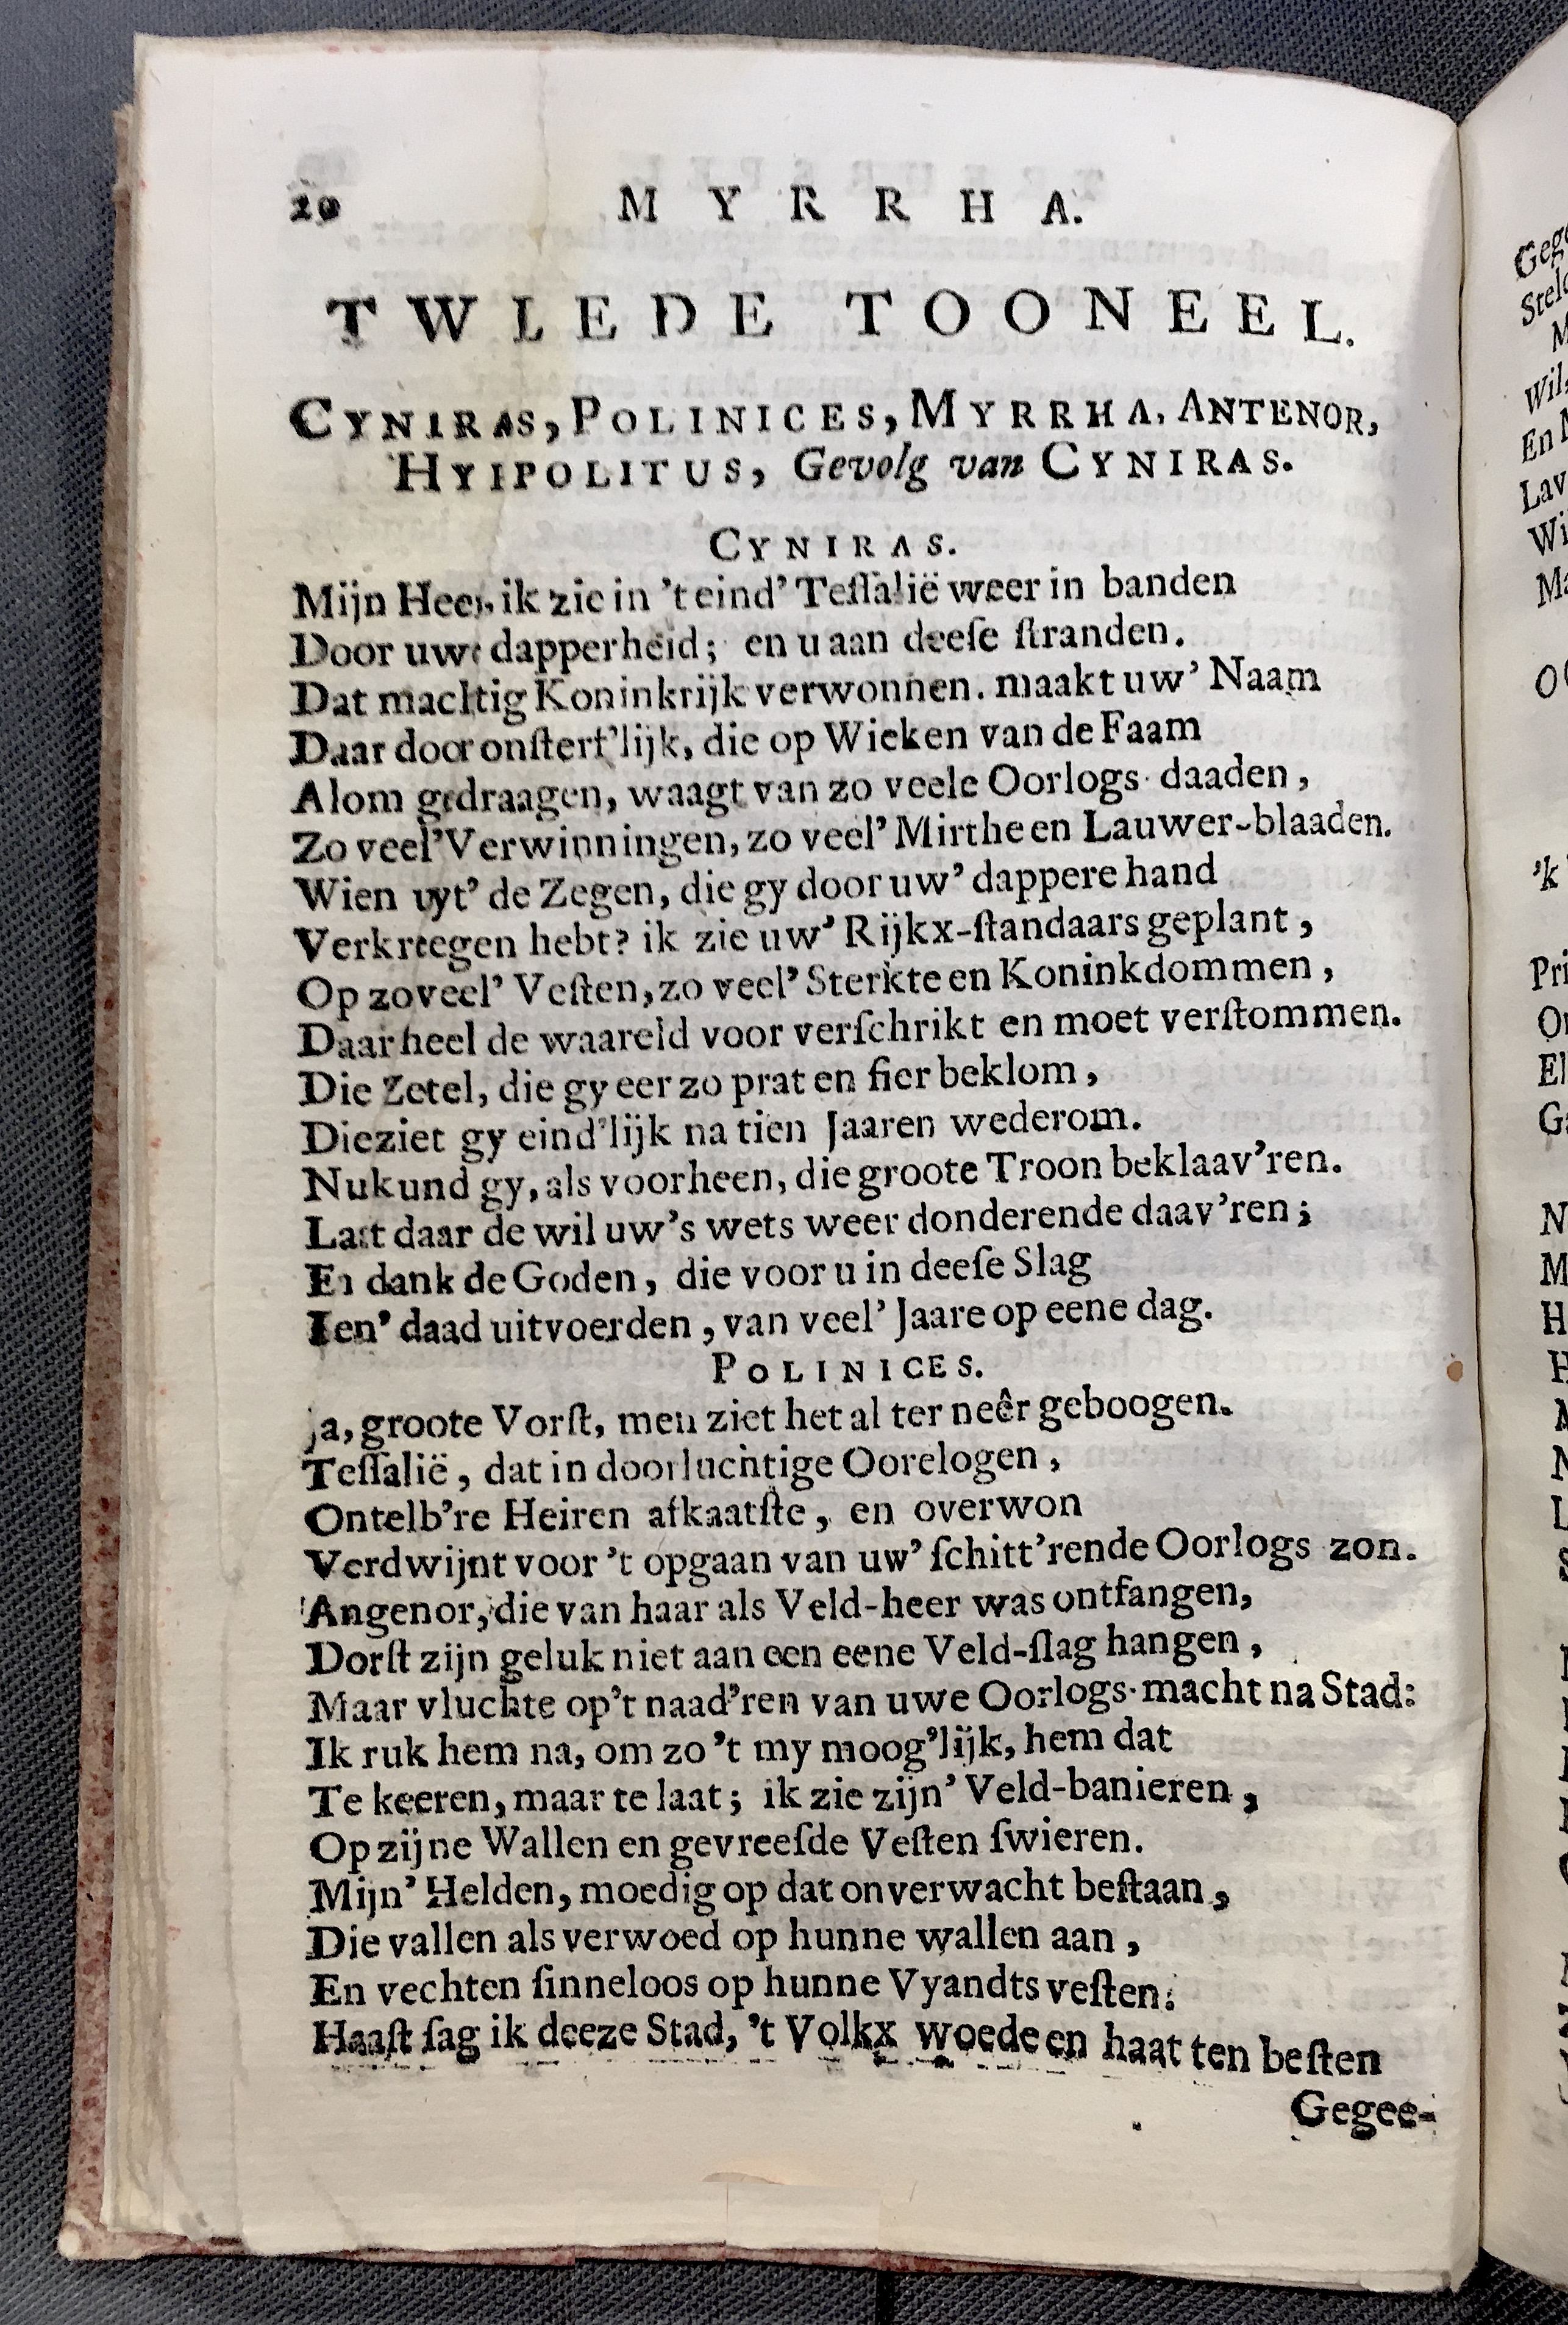 20 MYRRHA.
TWEEDE TOONEEL.
CYNIRAS, POLINICES, MYRRHA, ANTENOR,
HYIPOLITUS, Gevolg van CYNIRAS.
CYNIRAS.
Mijn Heer, ik zie in 't eind' Teſſalië weer in banden
Door uwe dapperheid; en u aan deeſe ſtranden.
Dat machtig Koninkrijk verwonnen. maakt uw' Naam
Daar door onſterf'lijk, die op Wieken van de Faam
Alom gedraagen, waagt van zo veele Oorlogs-daaden,
Zo veel' Verwinningen, zo veel' Mirthe en Lauwer-blaaden.
Wien uyt' de Zegen, die gy door uw' dappere hand
Verkreegen hebt? ik zie uw' Rijkx-ſtandaars geplant,
Op zoveel' Veſten, zo veel' Sterkte en Koninkdommen,
Daar heel de waareld voor verſchrikt en moet verſtommen.
Die Zetel, die gy eer zo prat en fier beklom,
Die ziet gy eind'lijk na tien Jaaren wederom.
Nu kund gy, als voorheen, die groote Troon beklaav'ren.
Laat daar de wil uw's wets weer donderende daav'ren;
En dank de Goden, die voor u in deeſe Slag
Een' daad uitvoerden, van veel' Jaare op eene dag.
POLINICES.
Ja, groote Vorſt, men ziet het al ter neêr geboogen.
Teſſalië, dat in doorluchtige Oorelogen,
Ontelb're Heiren afkaatſte, en overwon
Verdwijnt voor 't opgaan van uw' ſchitt'rende Oorlogs zon.
Angenor, die van haar als Veld-heer was ontfangen,
Dorſt zijn geluk niet aan een eene Veld-ſlag hangen,
Maar vluchte op't naad'ren van uwe Oorlogs-macht na Stad:
Ik ruk hem na, om zo 't my moog'lijk, hem dat
Te keeren, maar te laat; ik zie zijn' Veld-banieren,
Op zijne Wallen en gevreeſde Veſten ſwieren.
Mijn' Helden, moedig op dat onverwacht beſtaan,
Die vallen als verwoed op hunne wallen aan,
En vechten ſinneloos op hunne Vyandts veſten:
Haaſt ſag ik deeze Stad, 't Volkx woede en haat ten beſten
Gegee-